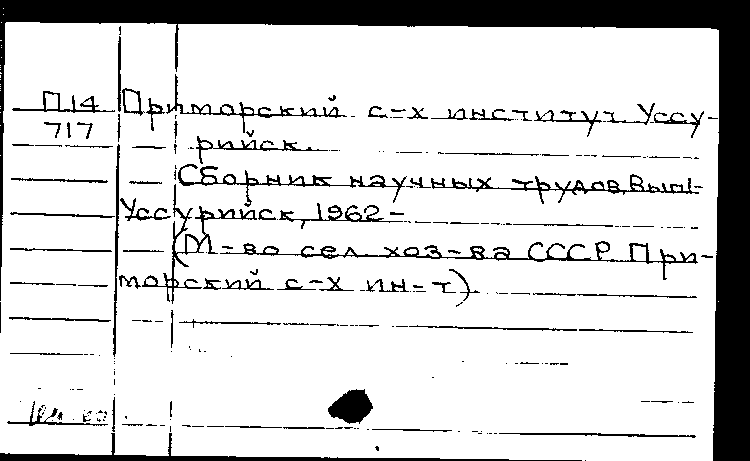 П14 Приморский с-х институт. Уссу-
717 рийск.
Сборник научных трудов. Вып1-
Уссурийск, 1962-
(М-во сел. хоз-ва СССР. При-
морский с-х ин-т).